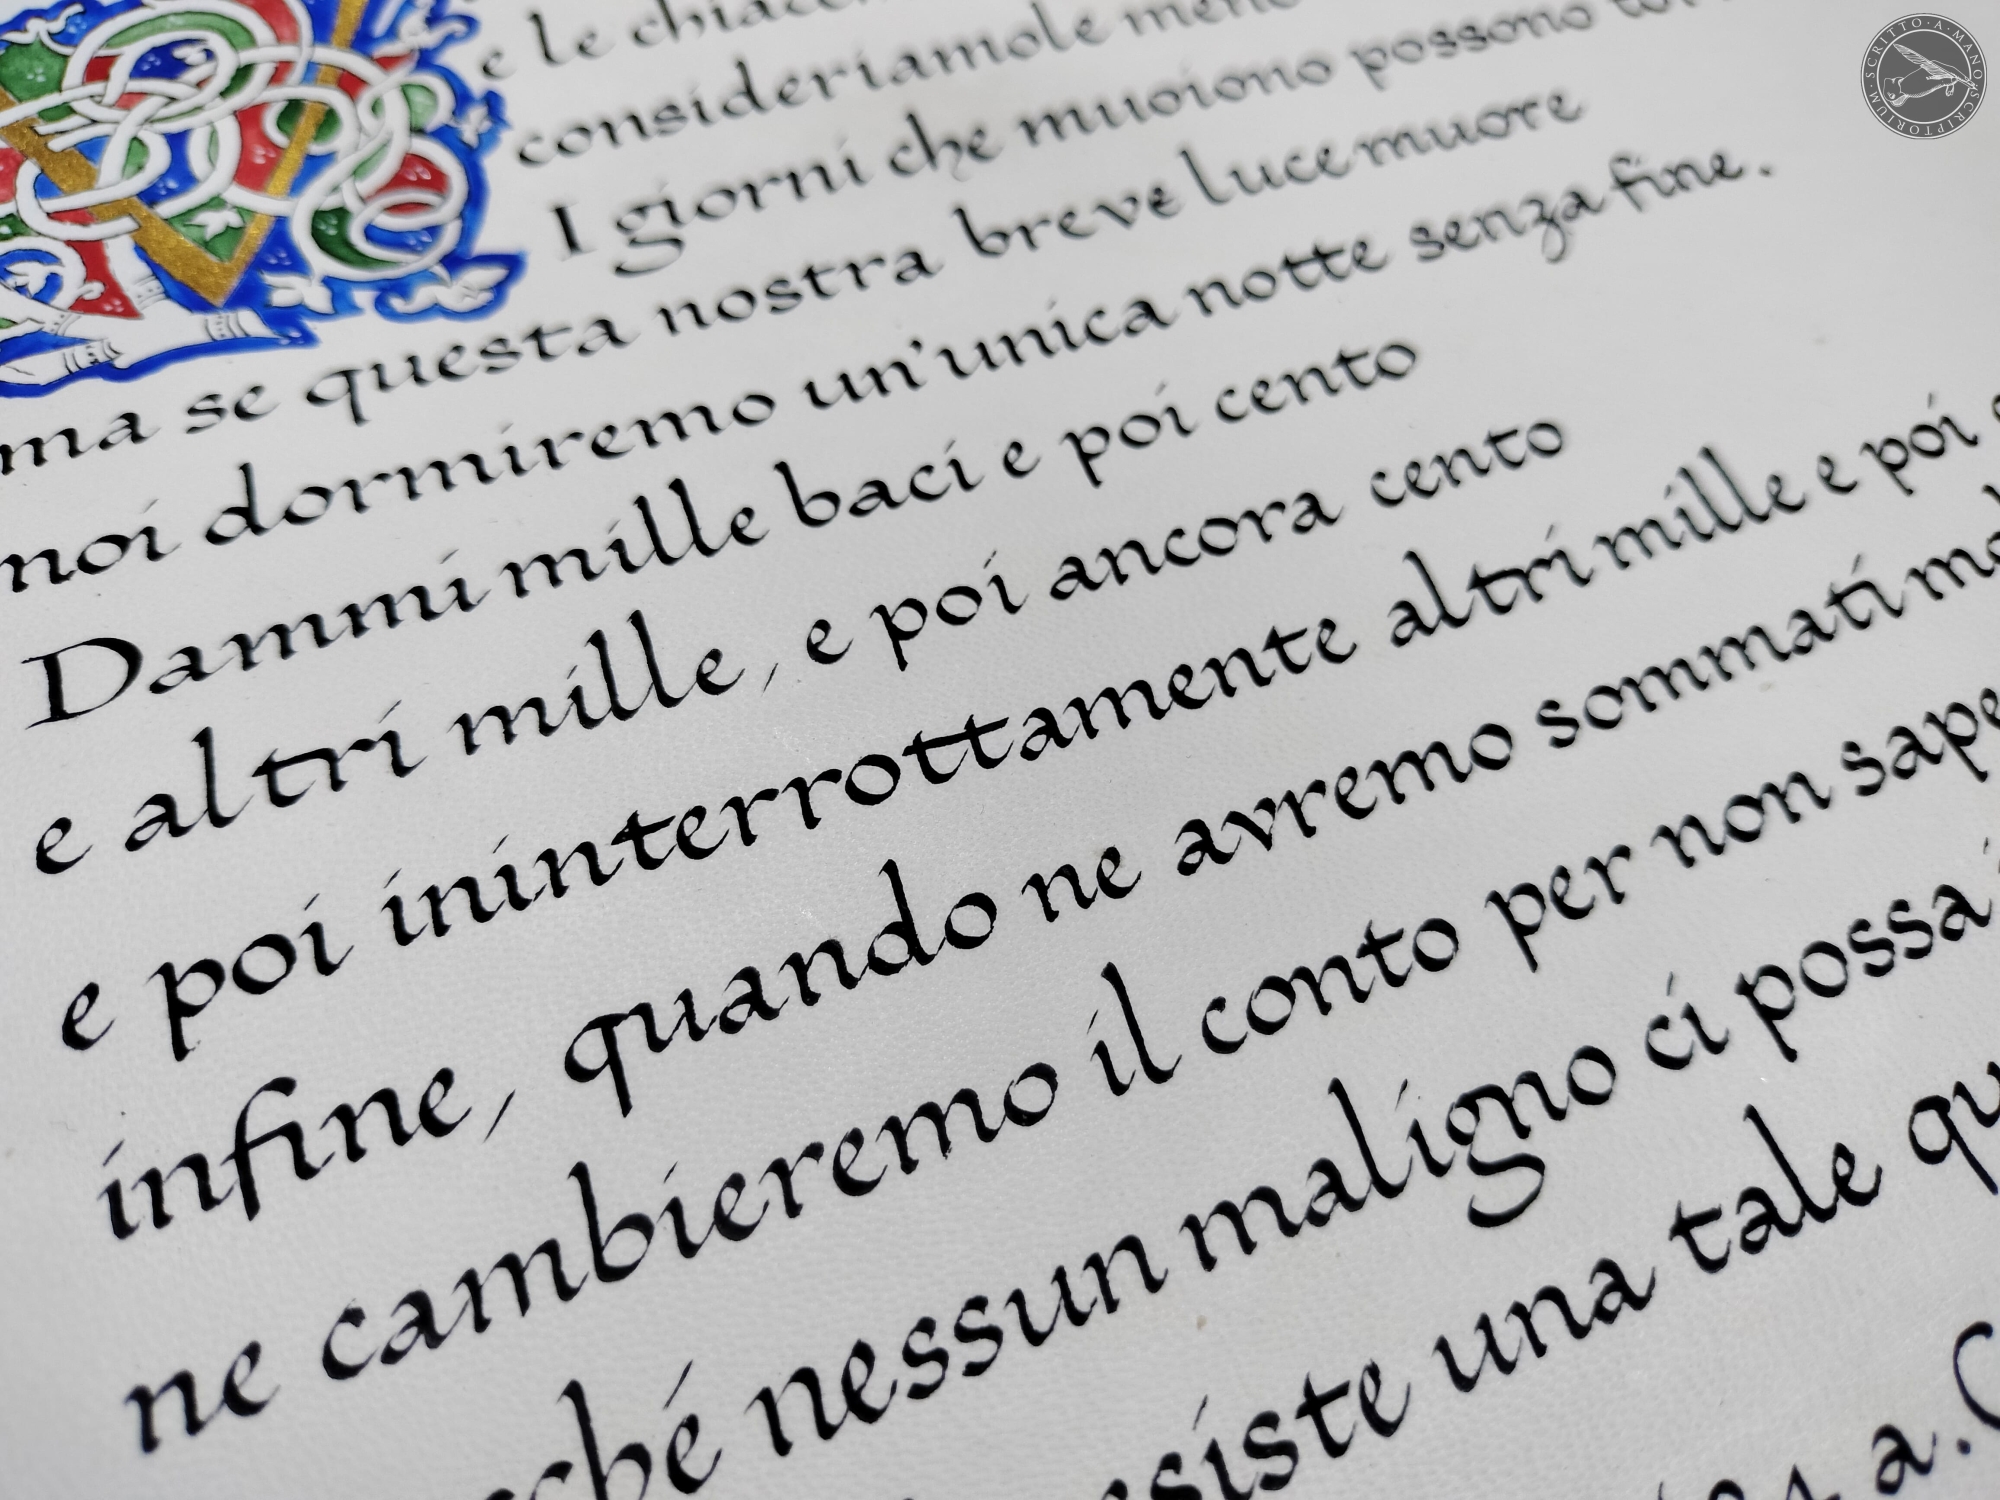 e le
consideriamole
I giorni che muoiono possono
ma se questa nostra breve luce muore
noi dormiremo un'unica notte senza fine.
Dammi mille baci e poi cento
e altri mille, e poi ancora cento
e poi ininterrottamente altri mille e poi
infine, quando ne avremo sommati
ne cambieremo il conto per non sape
ché nessun maligno ci possa
siste una tale qu
a.C
SCRITTO·A·MANO·SCRIPTORIUM